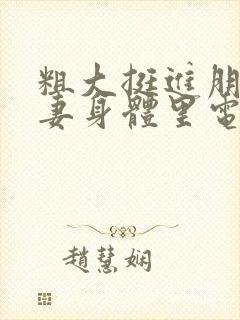 粗大挺進朋
妻身體里電
趙慧娴